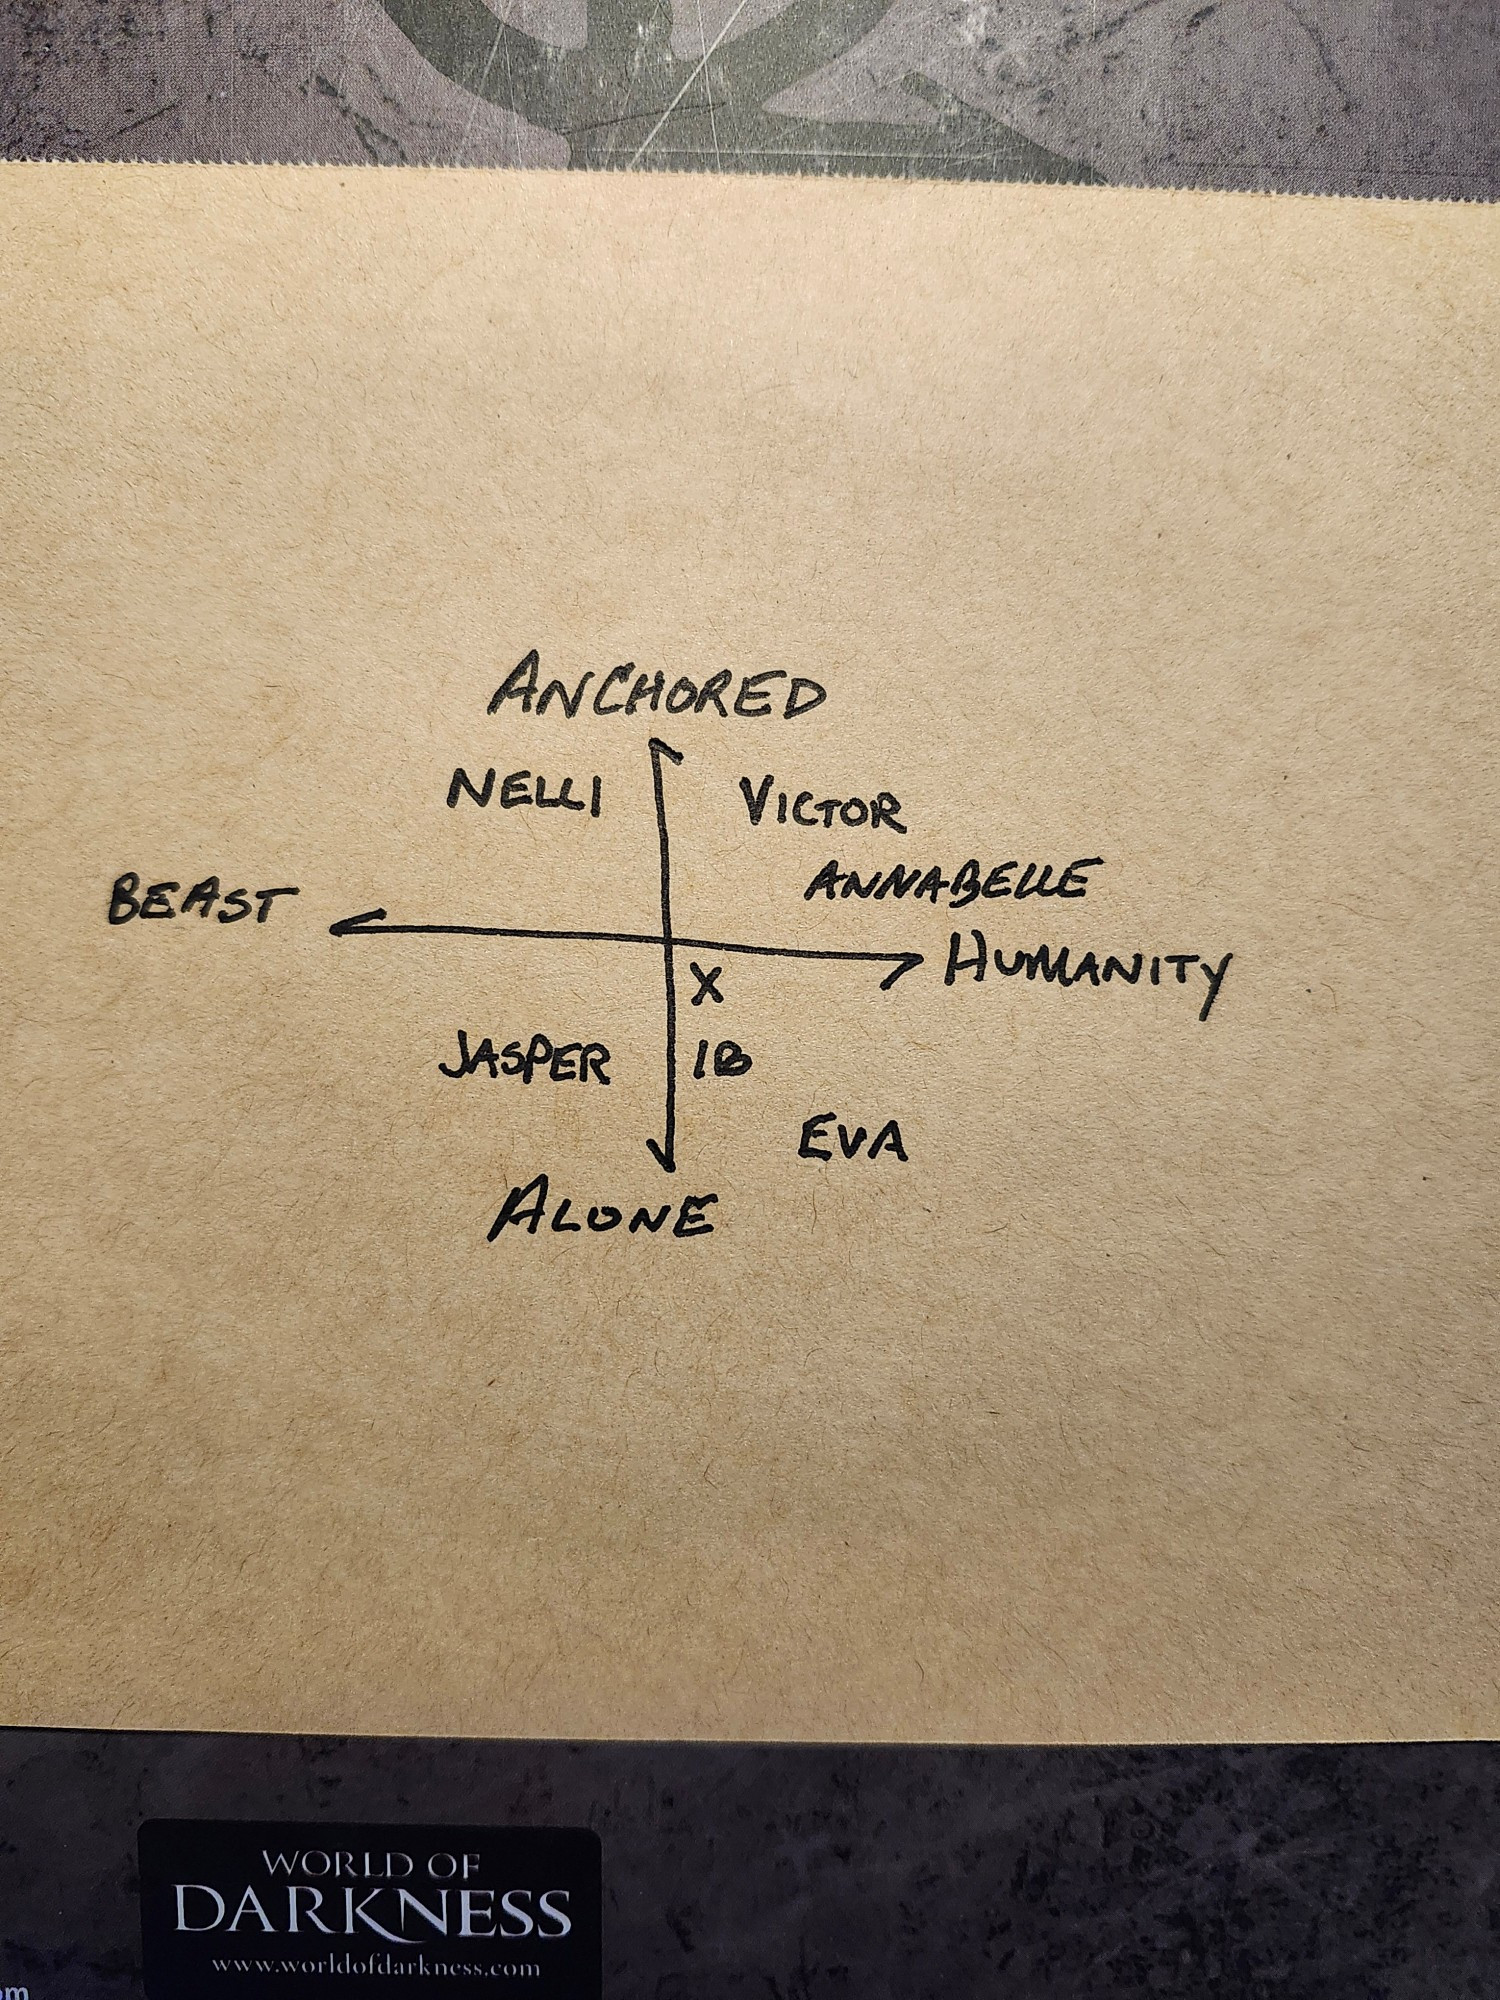 ANCHORED
NELLI
VICTOR
ANNABELLE
BEAST
HUMANITY
X
JASPER
IB
EVA
ALONE
WORLD OF
DARKNESS
www.worldofdarkness.com
om